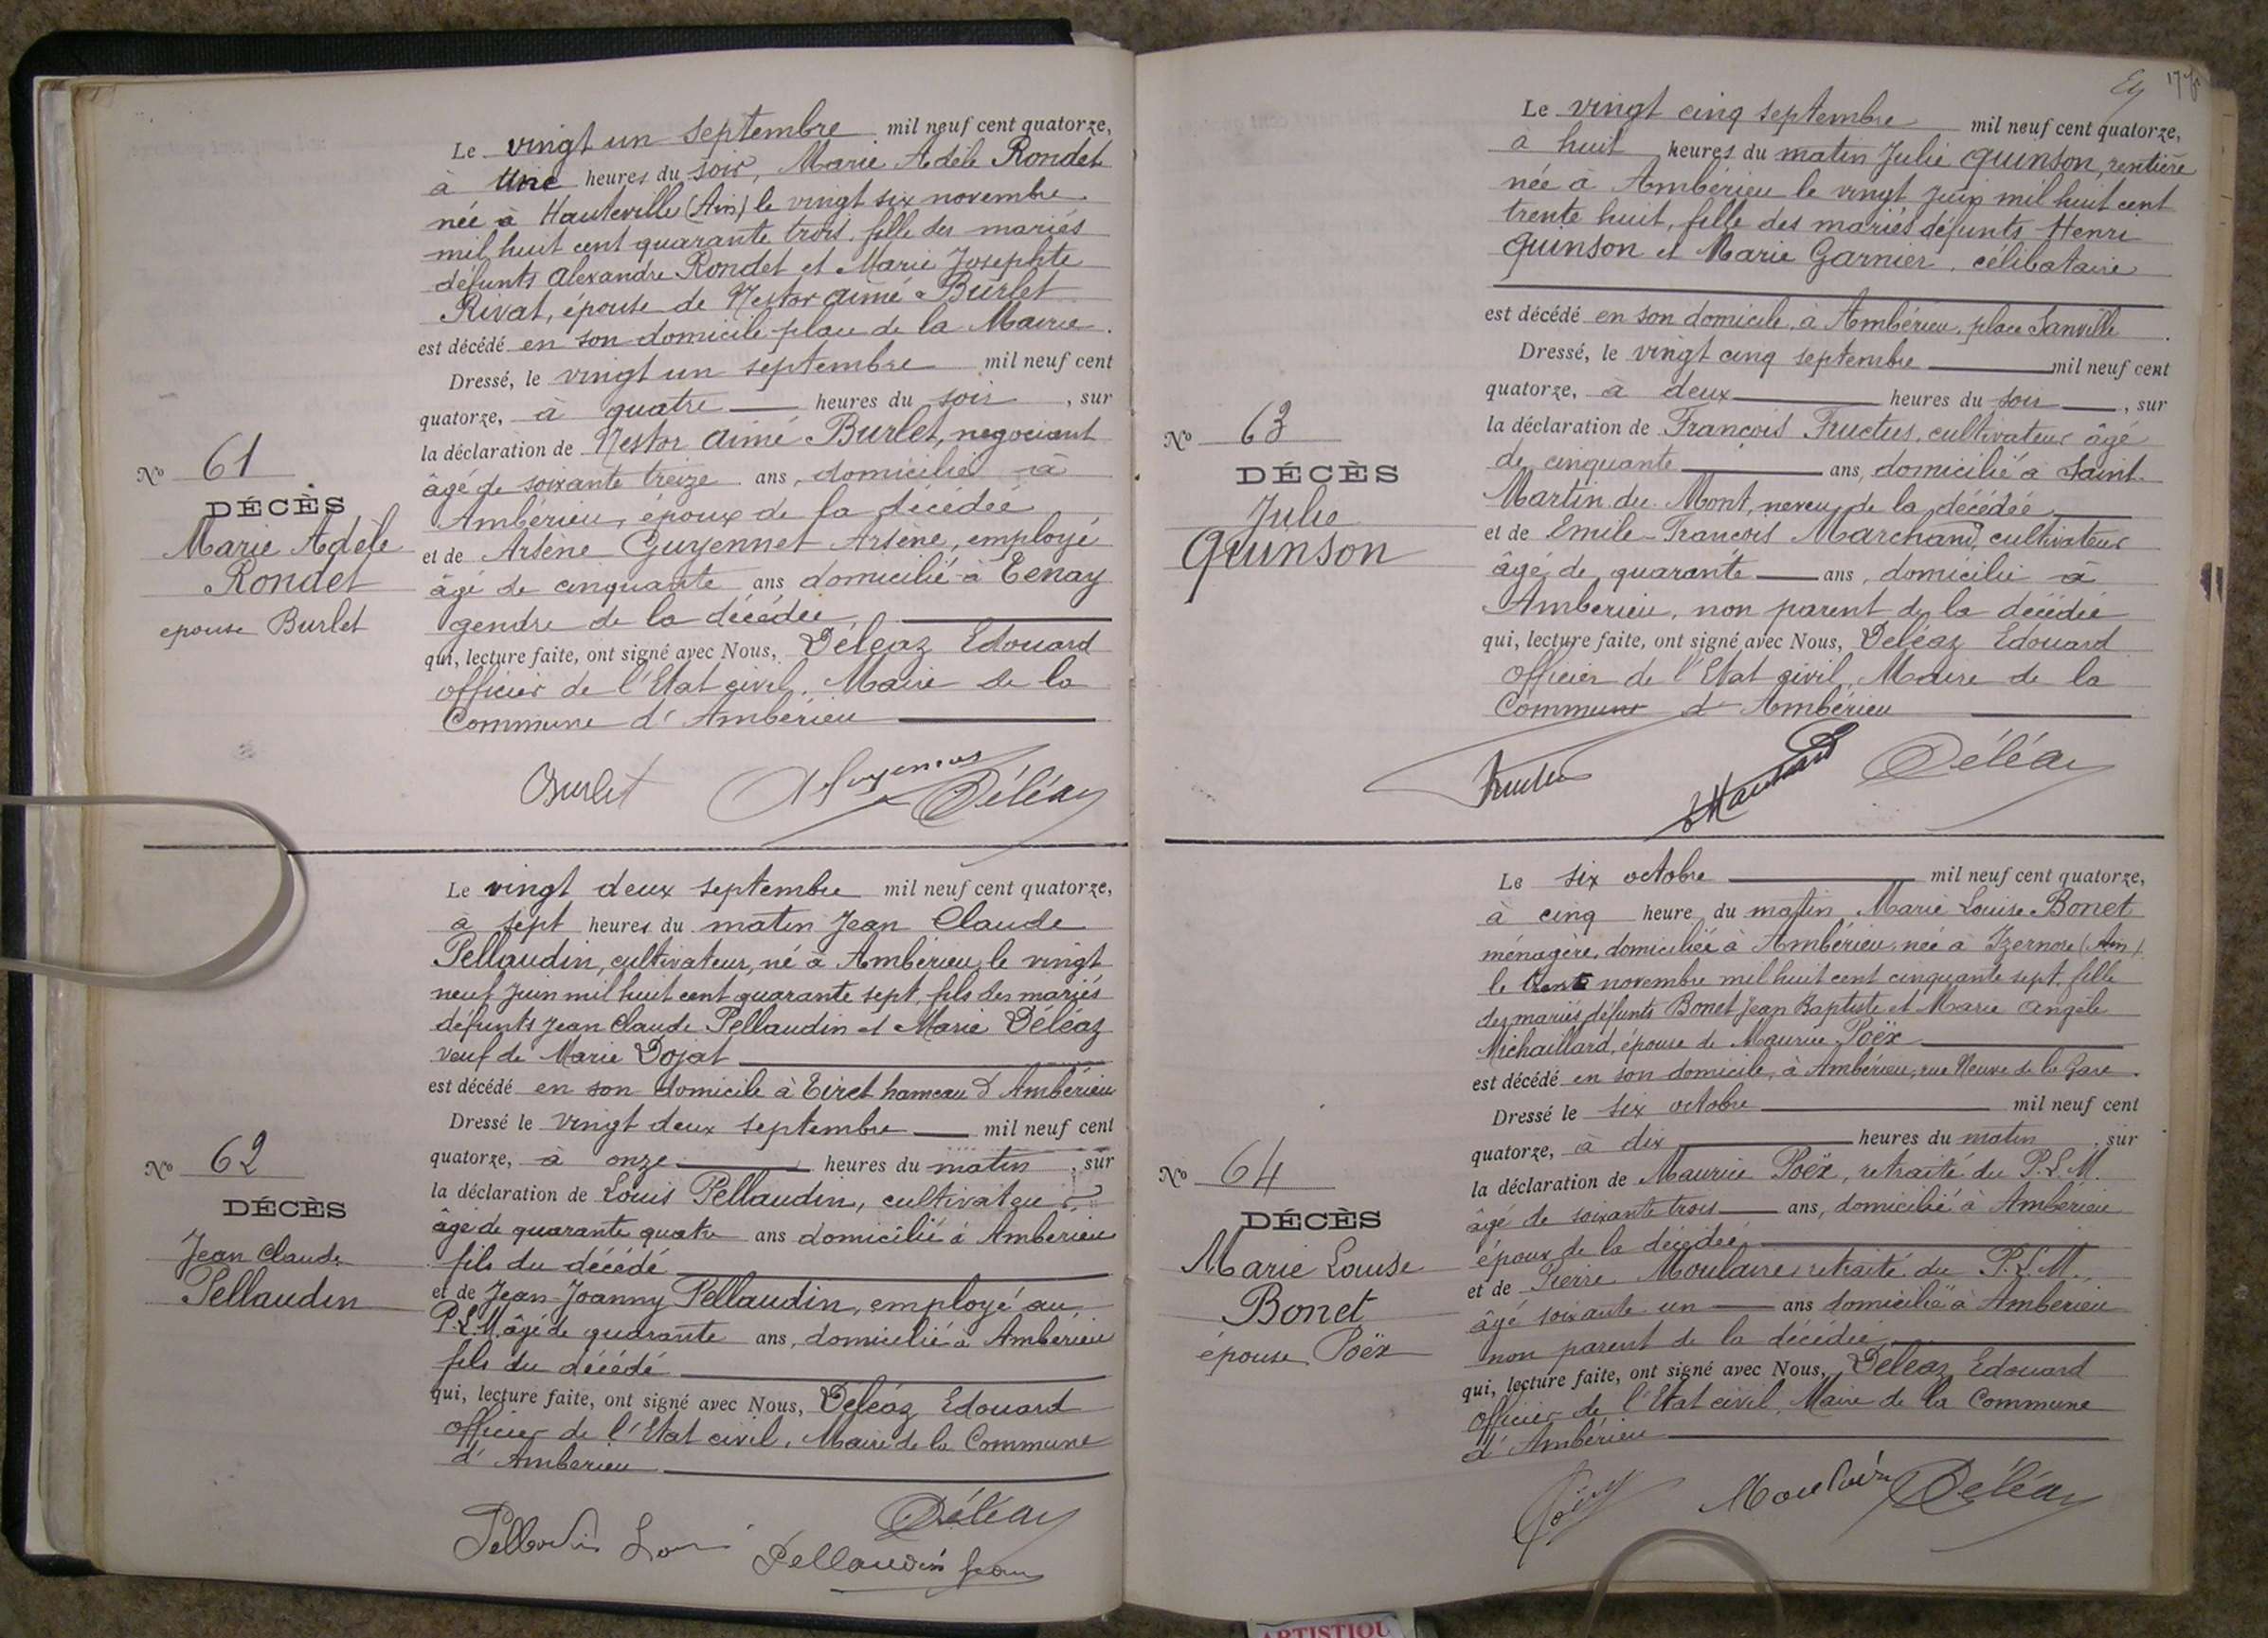 Le vingt un septembre mil neuf cent quatorze,
à une heures du soir, Marie Adèle Rondet
née à Hauteville (Ain) le vingt six novembre
mil huit cent quarante trois, fille des mariés
défunts Alexandre Rondet et Marie Josephte
Rivat, épouse de Nestor Aimé Burlet
est décédé en son domicile place de la Mairie.
Dressé, le vingt un septembre mil neuf cent
quatorze, à quatre heures du soir, sur
la déclaration de Nestor Aimé Burlet, négociant
âgé de soixante treize ans, domicilié à
Ambérieu, époux de la décédée
et de Arsène Guyennet Arsène, employé
âgé de cinquante ans domicilié à Tenay
gendre de la décédée,
qui, lecture faite, ont signé avec Nous, Déléaz Edouard
officier de l'Etat civil, Maire de la
Commune d'Ambérieu
No 61
DÉCÈS
Marie Adèle
Rondet
épouse Burlet
Burlet Déléaz
Le vingt deux septembre mil neuf cent quatorze,
à sept heures du matin Jean Claude
Pellaudin, cultivateur, né à Ambérieu le vingt
neuf juin mil huit cent quarante sept, fils des mariés
défunts Jean Claude Pellaudin et Marie Déléaz
veuf de Marie Dojat
est décédé en son domicile à Tiret hameau d'Ambérieu
Dressé le vingt deux septembre mil neuf cent
quatorze, à onze heures du matin, sur
la déclaration de Louis Pellaudin, cultivateur
âgé de quarante quatre ans domicilié à Ambérieu
fils du décédé
et de Jean-Joanny Pellaudin, employé au
P.L.M. âgé de quarante ans, domicilié à Ambérieu
fils du décédé
qui, lecture faite, ont signé avec Nous, Déléaz Edouard
officier de l'Etat civil, Maire de la Commune
d'Ambérieu
No 62
DÉCÈS
Jean Claude
Pellaudin
Déléaz
Pellaudin Louis Pellaudin Jean
Le vingt cinq septembre mil neuf cent quatorze,
à huit heures du matin Julie Quinson, rentière
née à Ambérieu le vingt juin mil huit cent
trente huit, fille des mariés défunts Henri
Quinson et Marie Garnier, célibataire
est décédé en son domicile, à Ambérieu, place Sanville.
Dressé, le vingt cinq septembre mil neuf cent
quatorze, à deux heures du soir, sur
la déclaration de François Fructus, cultivateur âgé
de cinquante ans, domicilié à Saint
Martin du Mont, neveu de la décédée
et de Emile-François Marchand, cultivateur
âgé de quarante ans, domicilié à
Ambérieu, non parent de la décédée
qui, lecture faite, ont signé avec Nous, Déléaz Edouard
Officier de l'Etat civil, Maire de la
Commune d'Ambérieu
No 63
DÉCÈS
Julie
Quinson
Fructus Marchand Déléaz
Le six octobre mil neuf cent quatorze,
à cinq heure du matin Marie Louise Bonet
ménagère, domiciliée à Ambérieu, née à Izernore (Ain)
le trente novembre mil huit cent cinquante sept, fille
des mariés défunts Bonet Jean Baptiste et Marie Angèle
Michaillard, épouse de Maurice Poëx
est décédé en son domicile, à Ambérieu, rue Neuve de la Gare.
Dressé le six octobre mil neuf cent
quatorze, à dix heures du matin, sur
la déclaration de Maurice Poëx, retraité du P.L.M.
âgé de soixante trois ans, domicilié à Ambérieu
époux de la décédée,
et de Pierre Moulaire, retraité du P.L.M.,
âgé soixante un ans domicilié à Ambérieu
non parent de la décédée,
qui, lecture faite, ont signé avec Nous, Déléaz Edouard
Officier de l'Etat civil, Maire de la Commune
d'Ambérieu
No 64
DÉCÈS
Marie Louise
Bonet
épouse Poëx
Moulaire Déléaz
ARTISTIQU